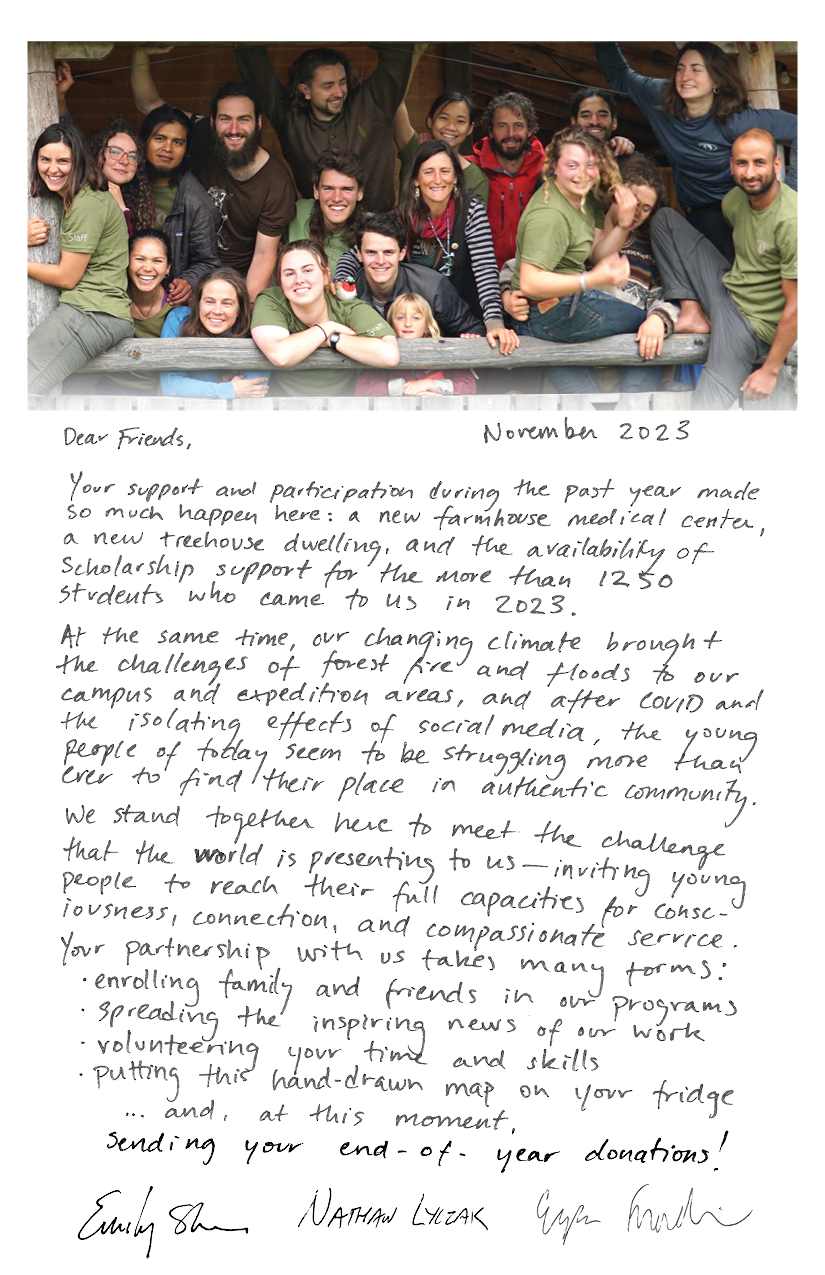 Staff
Staff
Dear Friends,
November 2023
Your support and participation during the past year made
so much happen here: a new farmhouse medical center,
a new treehouse dwelling, and the availability of
Scholarship support for the more than 1250
students who came to us in 2023.
At the same time, our changing climate brought
the challenges of forest fire and floods to our
campus and expedition areas, and after COVID and
the isolating effects of social media, the young
people of today seem to be struggling more than
ever to find their place in authentic community.
We stand together here to meet the challenge
that the world is presenting to us—inviting young
people to reach their full capacities for consc-
iousness, connection, and compassionate service.
Your partnership with us takes many forms:
· enrolling family and friends in our programs
· spreading the inspiring news of our work
· volunteering your time and skills
· putting this hand-drawn map on your fridge
... and, at this moment,
sending your end-of-year donations!
Emily NATHAN LYCZAK